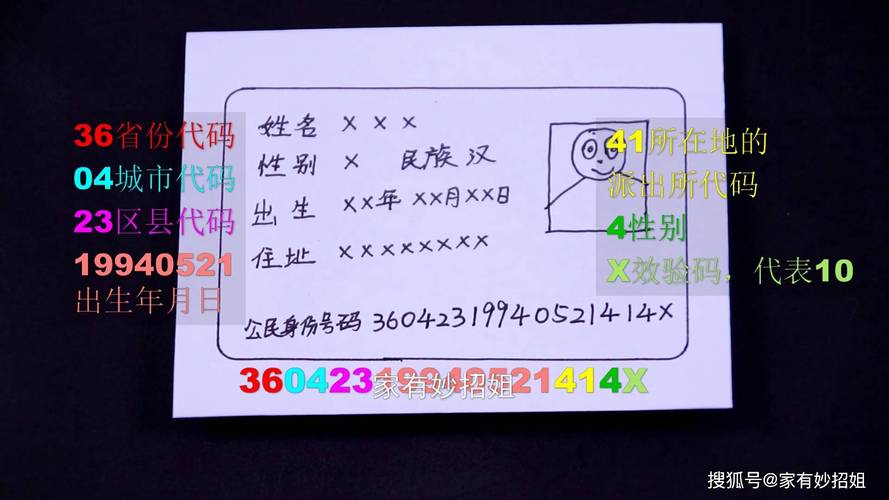 姓名 X X X
性别 X 民族 汉
出生 XX年 XX月XX日
住址 XXXXXXXX
公民身份号码 36042319940521414X
36省份代码
04城市代码
23区县代码
19940521
出生年月日
41所在地的
派出所代码
4性别
X效验码，代表10
36042319940521414X
家有妙招姐
搜狐号@家有妙招姐